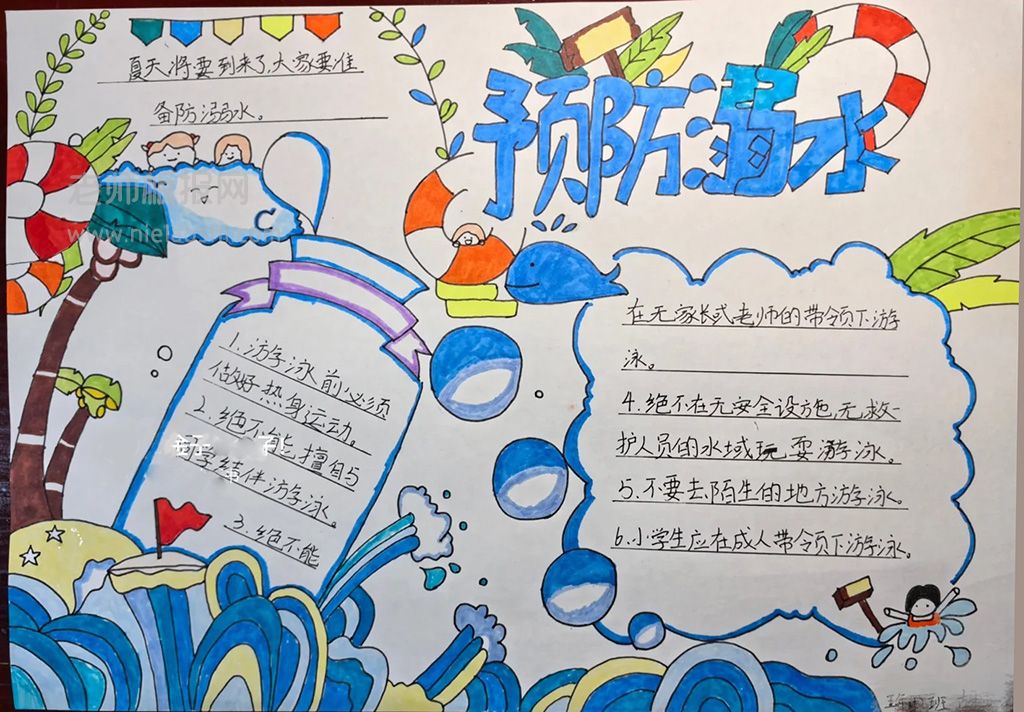 夏天将要到来了,大家要准
备防溺水。
预防溺水
老师板报网
1.游学泳前必须
做好热身运动。
2.绝不能擅自与
同学结伴游学泳。
3.绝不能
在无家长或老师的带领下游
泳。
4.绝不在无安全设施,无救
护人员的水域玩耍游泳。
5.不要去陌生的地方游学泳。
6.小学生应在成人带领下游学泳。